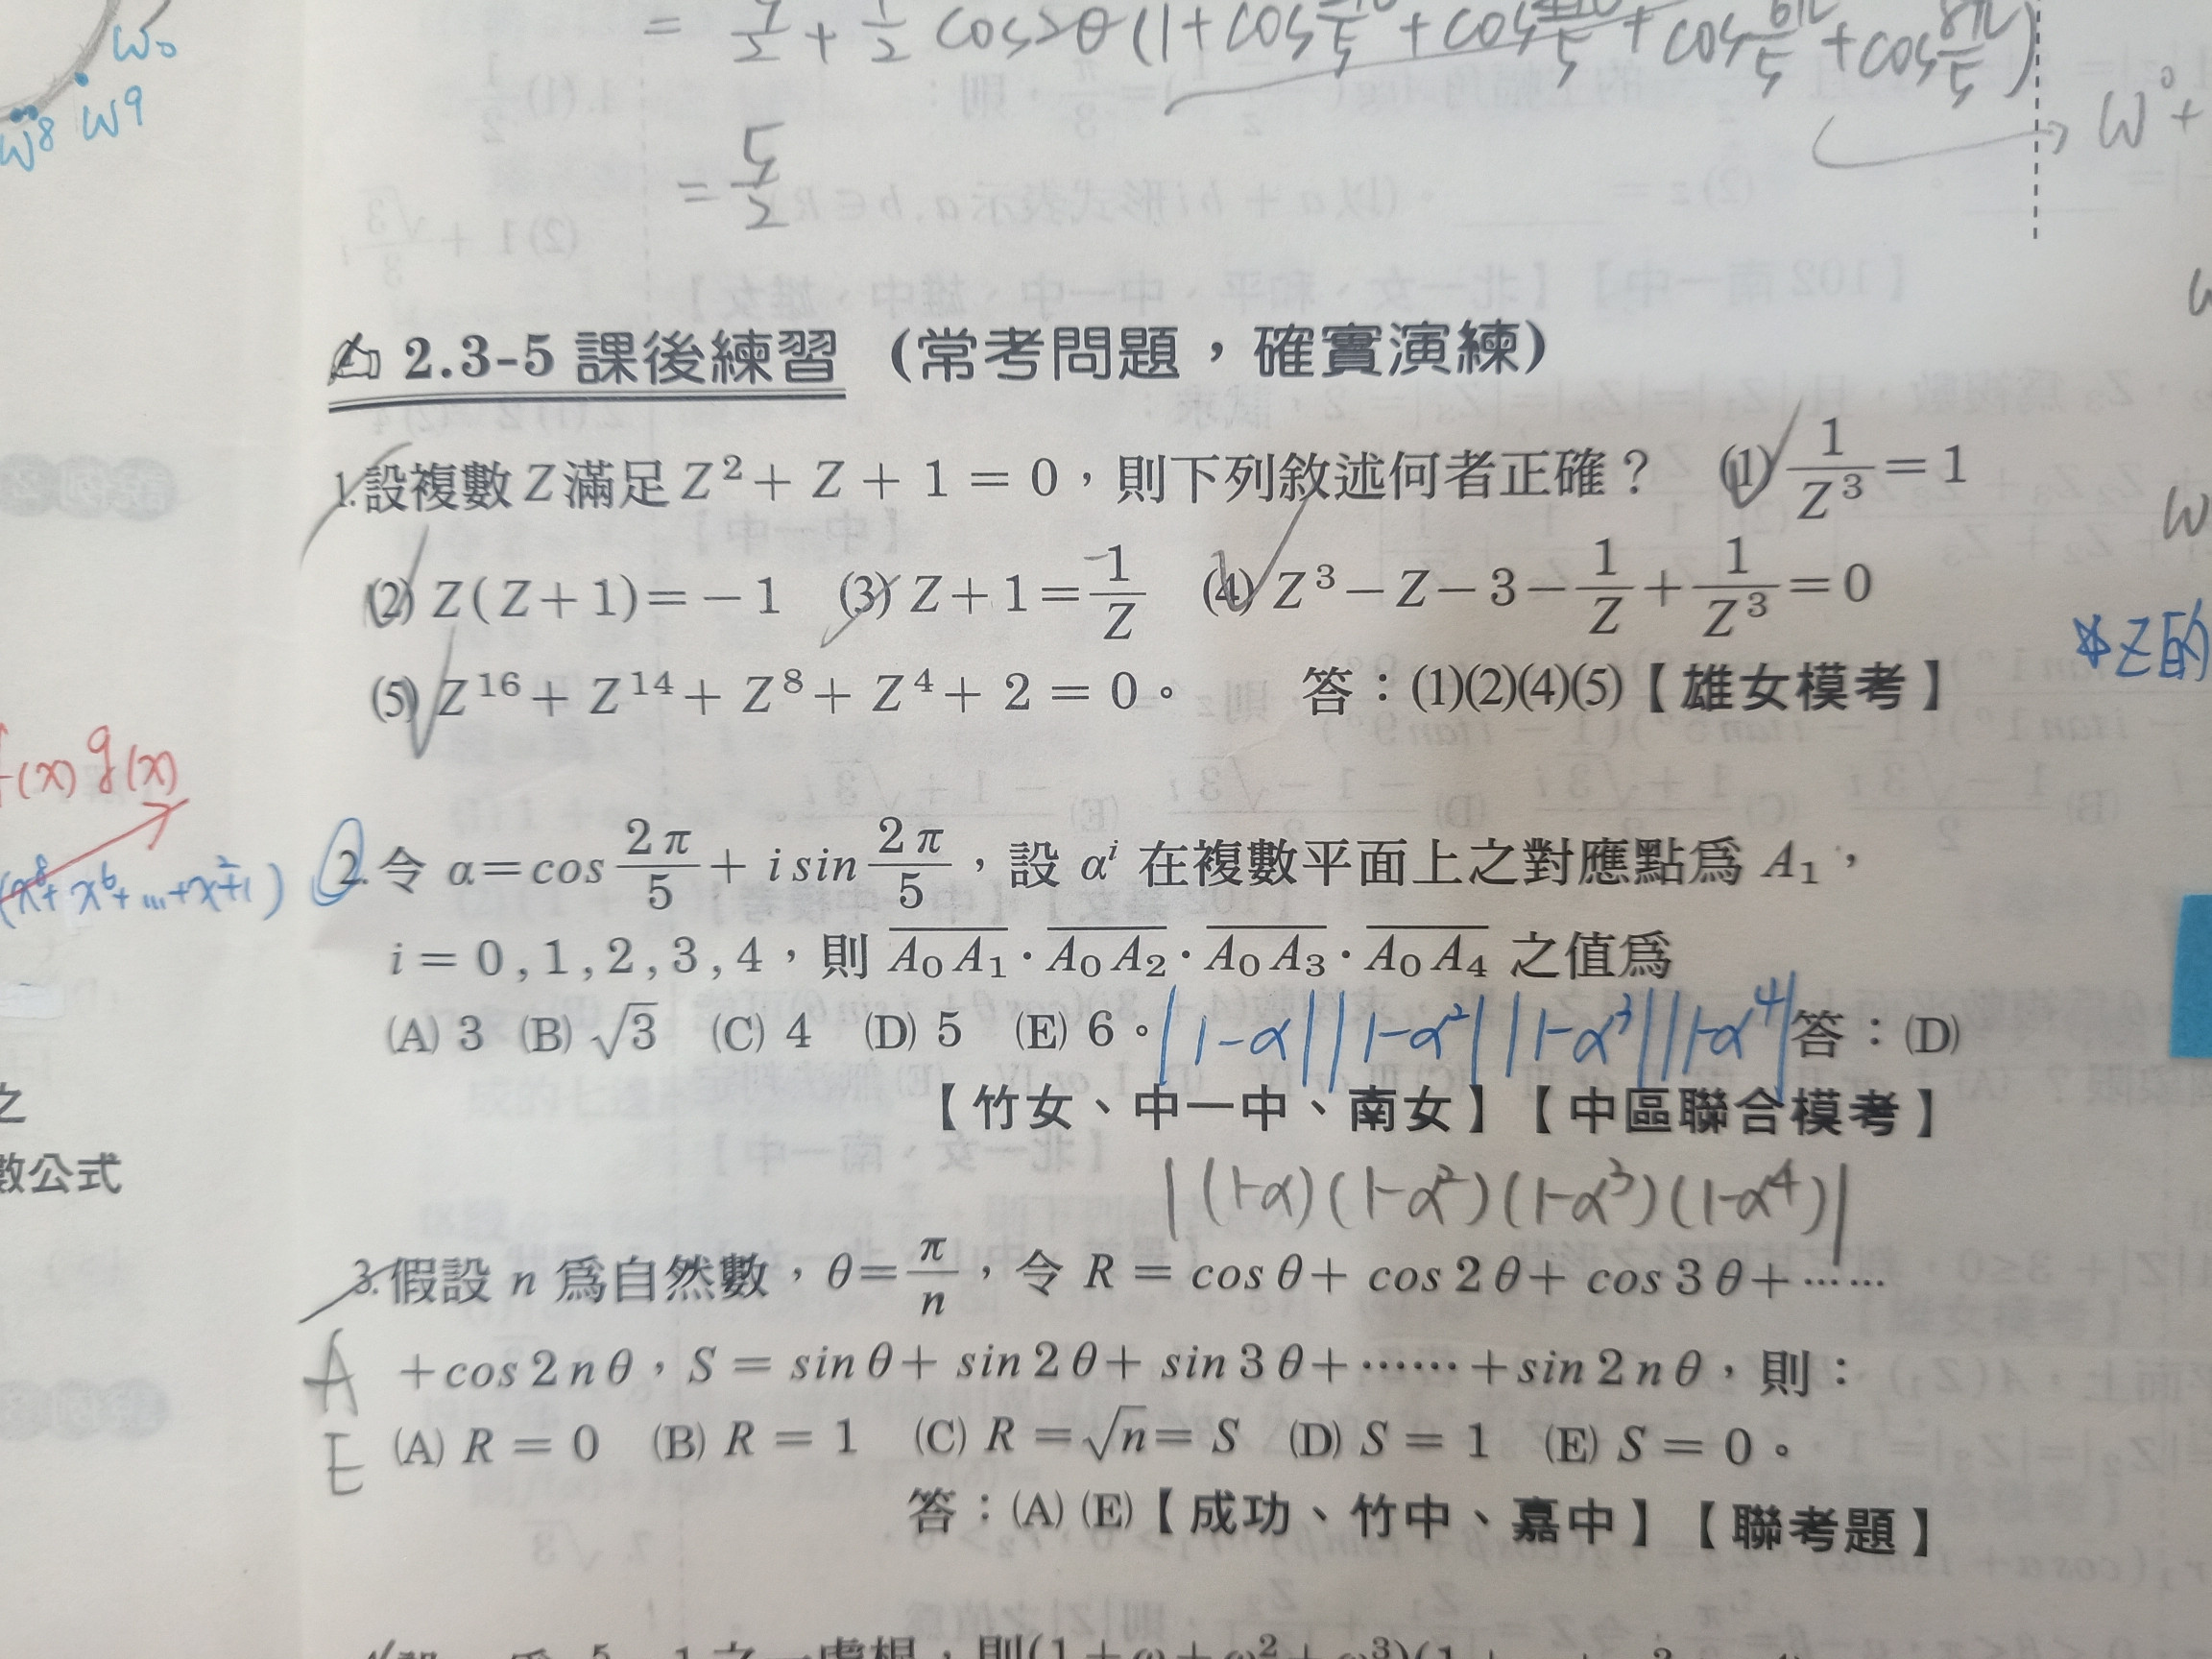 = 5/2 + 1/2 cos2θ(1+cos 2π/5 + cos 4π/5 + cos 6π/5 + cos 8π/5)
ω0
ω8 ω9
ω0+
= 5/2
2.3-5 課後練習 (常考問題，確實演練)
1.設複數 Z 滿足 Z²+ Z + 1 = 0，則下列敘述何者正確？ (1) 1/Z³ = 1
(2) Z(Z+1)=－1 (3) Z+1=-1/Z (4) Z³－Z－3－1/Z+1/Z³=0
(5) Z¹⁶+ Z¹⁴+ Z⁸+ Z⁴+ 2 = 0。 答：(1)(2)(4)(5)【雄女模考】
Z的
(x) g(x)
(x⁸+x⁶+...+x²+1)
2.令 α=cos 2π/5 + i sin 2π/5，設 αⁱ 在複數平面上之對應點爲 A₁，
i = 0 , 1 , 2 , 3 , 4，則 A₀A₁ · A₀A₂ · A₀A₃ · A₀A₄ 之值爲
(A) 3 (B) √3 (C) 4 (D) 5 (E) 6。 |1-α||1-α²||1-α³||1-α⁴| 答：(D)
【竹女、中一中、南女】【中區聯合模考】
之
數公式
|(1-α)(1-α²)(1-α³)(1-α⁴)|
3.假設 n 爲自然數，θ=π/n，令 R = cos θ+ cos 2θ+ cos 3θ+……
A
+cos 2nθ，S = sin θ+ sin 2θ+ sin 3θ+……+sin 2nθ，則：
E
(A) R = 0 (B) R = 1 (C) R =√n= S (D) S = 1 (E) S = 0。
答：(A) (E)【成功、竹中、嘉中】【聯考題】